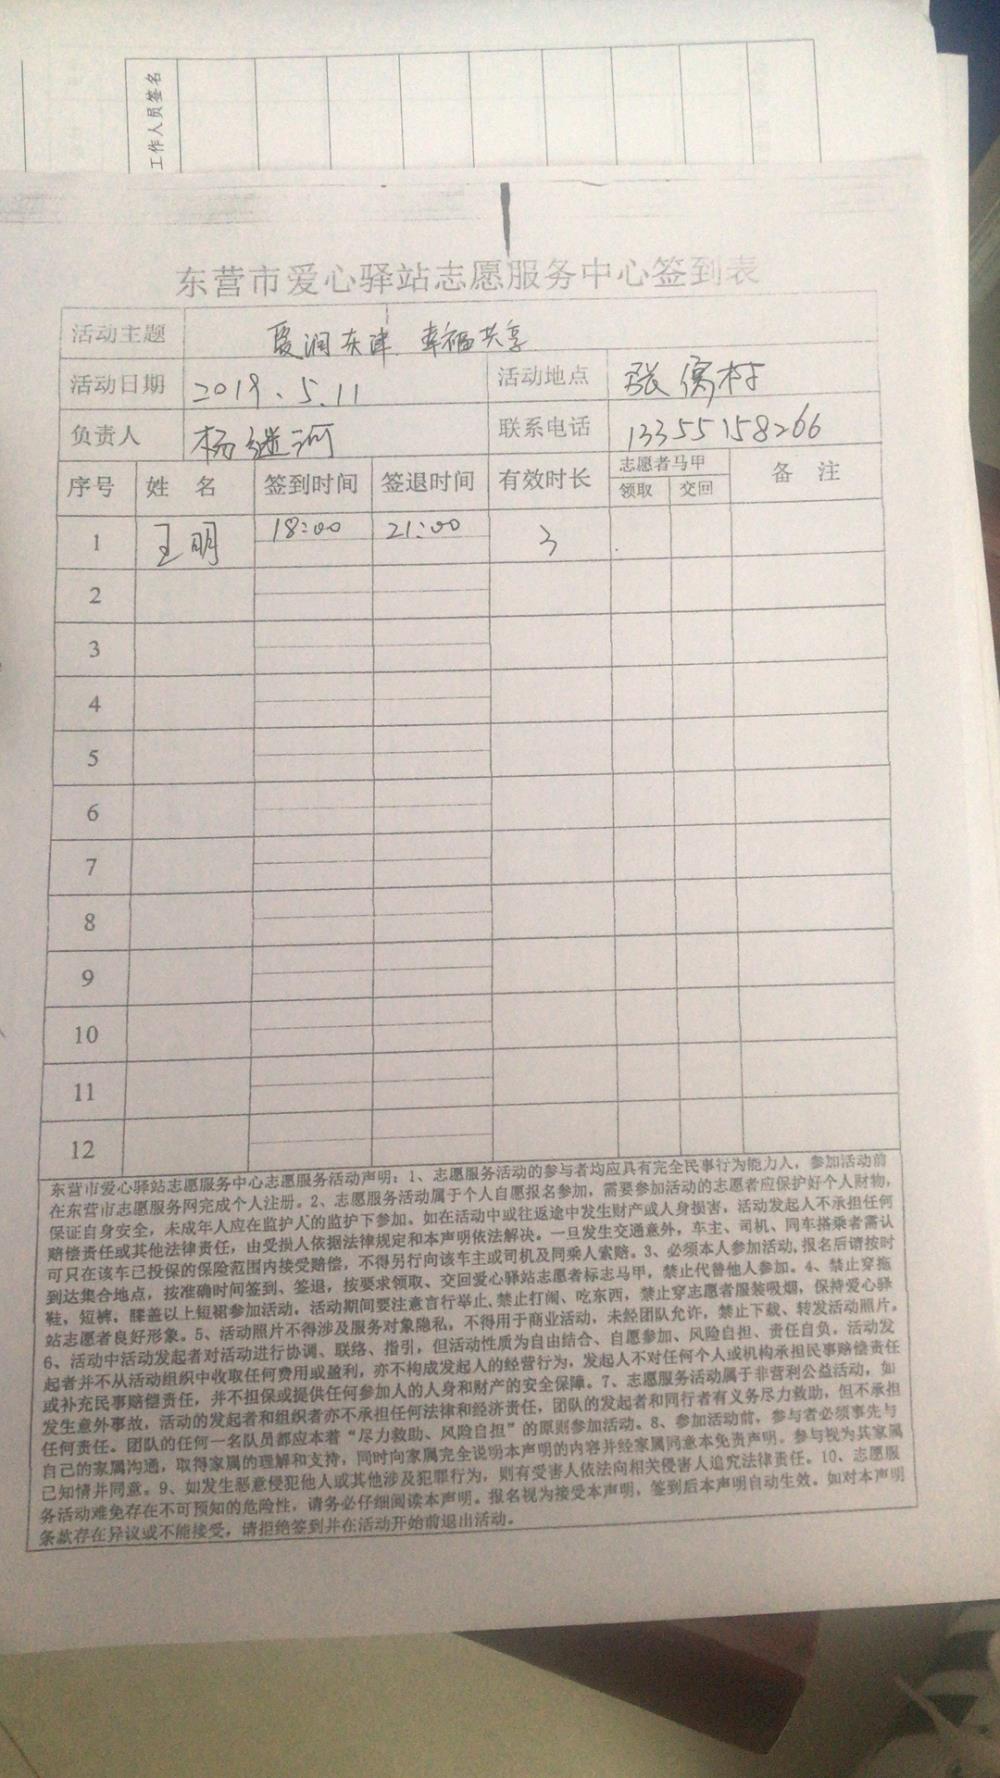 工作人员签名
东营市爱心驿站志愿服务中心签到表
活动主题 爱润东津 幸福共享
活动日期 2019.5.11 活动地点 张儒村
负责人 杨继河 联系电话 13355158266
序号 姓 名 签到时间 签退时间 有效时长 志愿者马甲 备 注
领取 交回
1 王明 18:00 21:00 3
2
3
4
5
6
7
8
9
10
11
12
东营市爱心驿站志愿服务中心志愿服务活动声明：1、志愿服务活动的参与者均应具有完全民事行为能力人，参加活动前
在东营市志愿服务网完成个人注册。2、志愿服务活动属于个人自愿报名参加，需要参加活动的志愿者应保护好个人财物，
保证自身安全，未成年人应在监护人的监护下参加。如在活动中或往返途中发生财产或人身损害，活动发起人不承担任何
赔偿责任或其他法律责任，由受损人依据法律规定和本声明依法解决。一旦发生交通意外，车主、司机、同车搭乘者需认
可只在该车已投保的保险范围内接受赔偿，不得另行向该车主或司机及同乘人索赔。3、必须本人参加活动，报名后请按时
到达集合地点，按准确时间签到、签退，按要求领取、交回爱心驿站志愿者标志马甲，禁止代替他人参加。4、禁止穿拖
鞋，短裤，膝盖以上短裙参加活动，活动期间要注意言行举止，禁止打闹、吃东西，禁止穿志愿者服装吸烟，保持爱心驿
站志愿者良好形象。5、活动照片不得涉及服务对象隐私，不得用于商业活动，未经团队允许，禁止下载、转发活动照片。
6、活动中活动发起者对活动进行协调、联络、指引，但活动性质为自由结合、自愿参加、风险自担、责任自负，活动发
起者并不从活动组织中收取任何费用或盈利，亦不构成发起人的经营行为，发起人不对任何个人或机构承担民事赔偿责任
或补充民事赔偿责任，并不担保或提供任何参加人的人身和财产的安全保障。7、志愿服务活动属于非营利公益活动，如
发生意外事故，活动的发起者和组织者亦不承担任何法律和经济责任，团队的发起者和同行者有义务尽力救助，但不承担
任何责任。团队的任何一名队员都应本着“尽力救助、风险自担”的原则参加活动。8、参加活动前，参与者必须事先与
自己的家属沟通，取得家属的理解和支持，同时向家属完全说明本声明的内容并经家属同意本免责声明。参与视为其家属
已知情并同意。9、如发生恶意侵犯他人或其他涉及犯罪行为，则有受害人依法向相关侵害人追究法律责任。10、志愿服
务活动难免存在不可预知的危险性，请务必仔细阅读本声明。报名视为接受本声明，签到后本声明自动生效。如对本声明
条款存在异议或不能接受，请拒绝签到并在活动开始前退出活动。